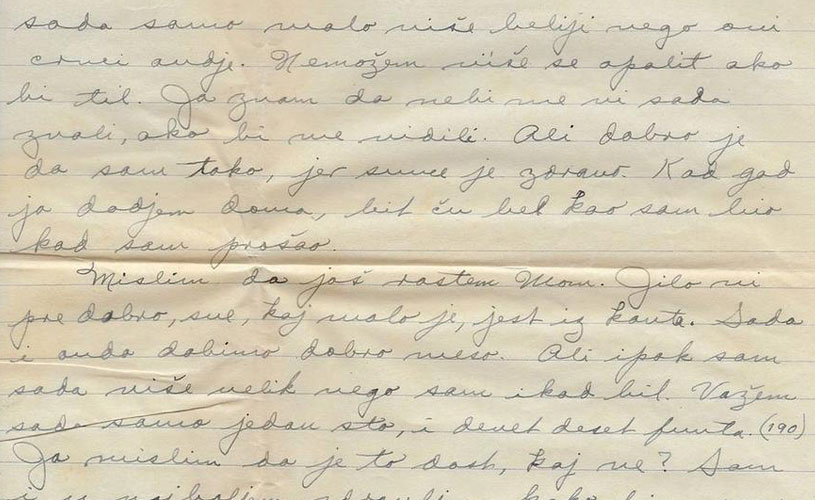 sada samo malo više beliji nego oni
crnci ondje. Nemožem više se opalit ako
bi til. Ja znam da nebi me ni sada
znali, ako bi me vidili. Ali dobro je
da sam tako, jer sunce je zdravo. Kad god
ja dodjem doma, bit ću bel kao sam bio
kad sam prošao.
Mislim da još rastem Mom. Jilo ni
pre dobro, sve, kaj malo je, jest iz kanta. Sada
i onda dobimo dobro meso. Ali ipak sam
sada više velik nego sam ikad bil. Važem
sada samo jedan sto, i devet deset funta. (190)
Ja mislim da je to dost, kaj ne? Sam
i u najboljem